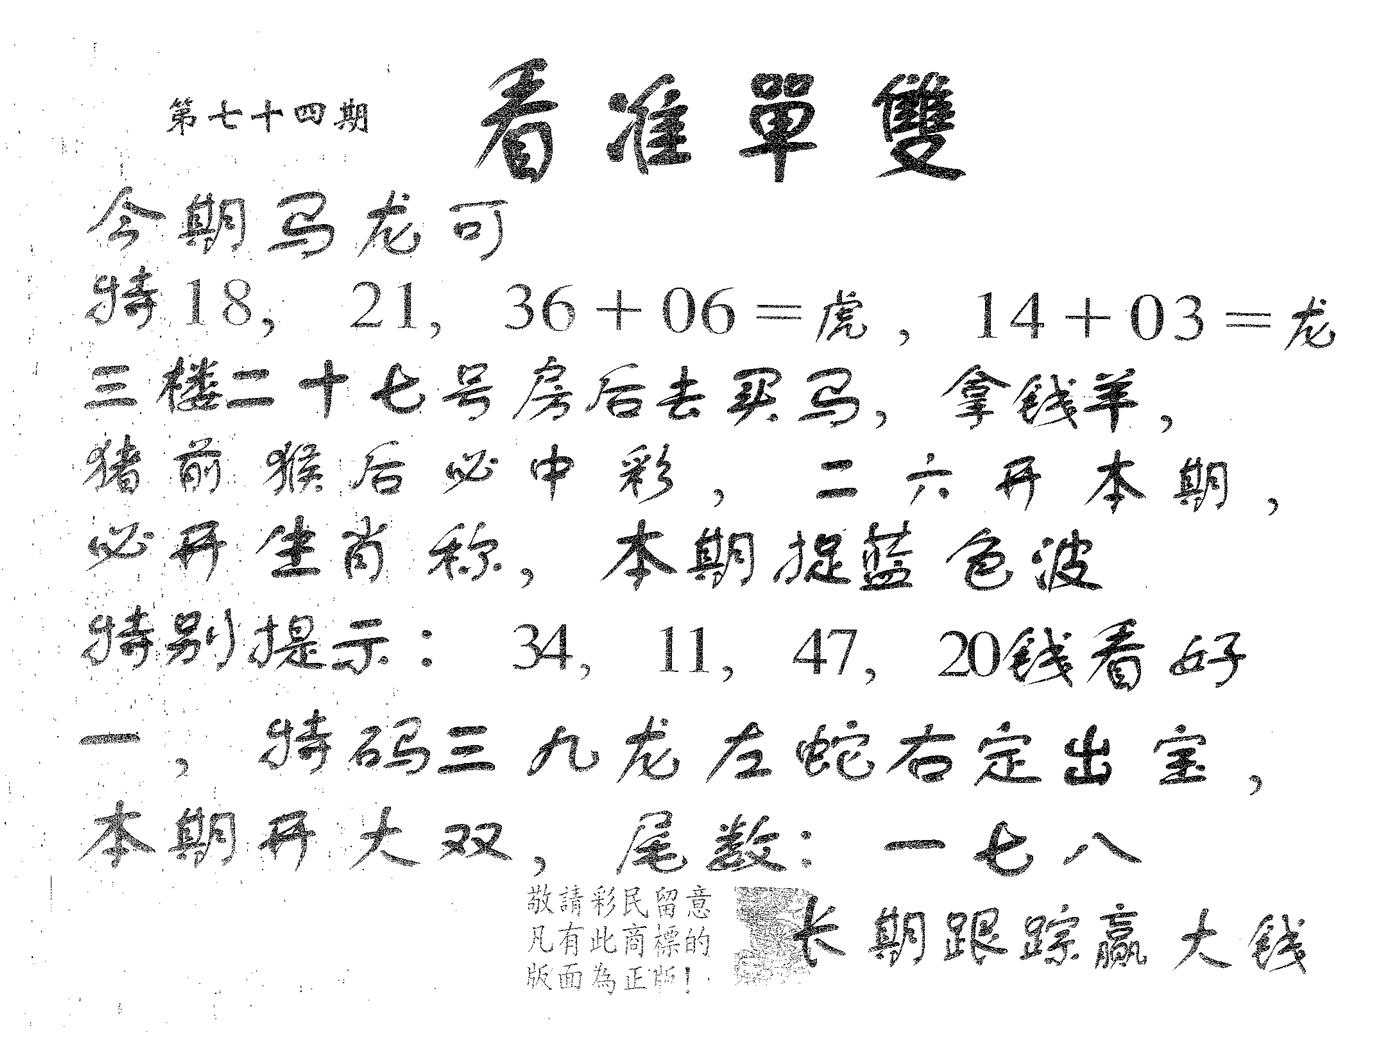 第七十四期
看准單雙
今期马龙可
特18, 21, 36+06=虎, 14+03=龙
三楼二十七号房后去买马,拿钱羊,
猪前猴后必中彩, 二六开本期,
必开生肖称, 本期捉蓝色波
特别提示: 34, 11, 47, 20钱看好
一, 特码三九龙左蛇右定出宝,
本期开大双, 尾数: 一七八
敬請彩民留意
凡有此商標的
版面為正版!
长期跟踪赢大钱